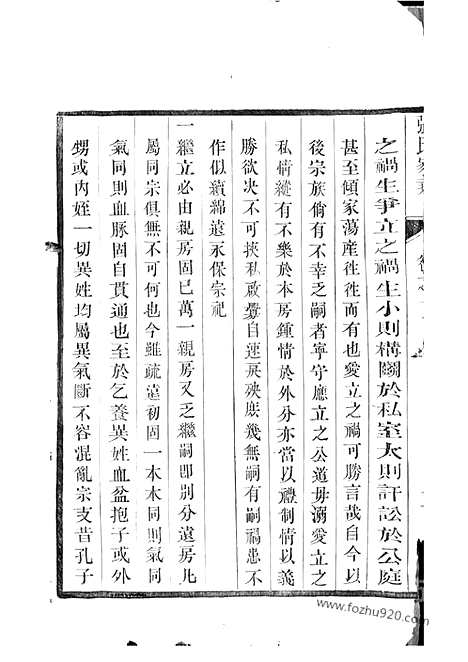 張氏家乘
之禍生爭立之禍生小則構鬭於私室大則訐訟於公庭
甚至傾家蕩產徃徃而有也愛立之禍可勝言哉自今以
後宗族倘有不幸乏嗣者寧守應立之公道毋溺愛立之
私情縱有不樂於本房鍾情於外分亦當以禮制情以義
勝欲决不可挾私啟釁自速戾殃庶幾無嗣有嗣禍患不
作似續綿遠永保宗祀
一繼立必由親房固已萬一親房又乏繼嗣即別分遠房凡
屬同宗俱無不可何也今雖疏遠初固一本木同則氣同
氣同則血脈固自貫通也至於乞養異姓血盆抱子或外
甥或內姪一切異姓均屬異氣斷不容混亂宗支昔孔子
www.fozhu920.com